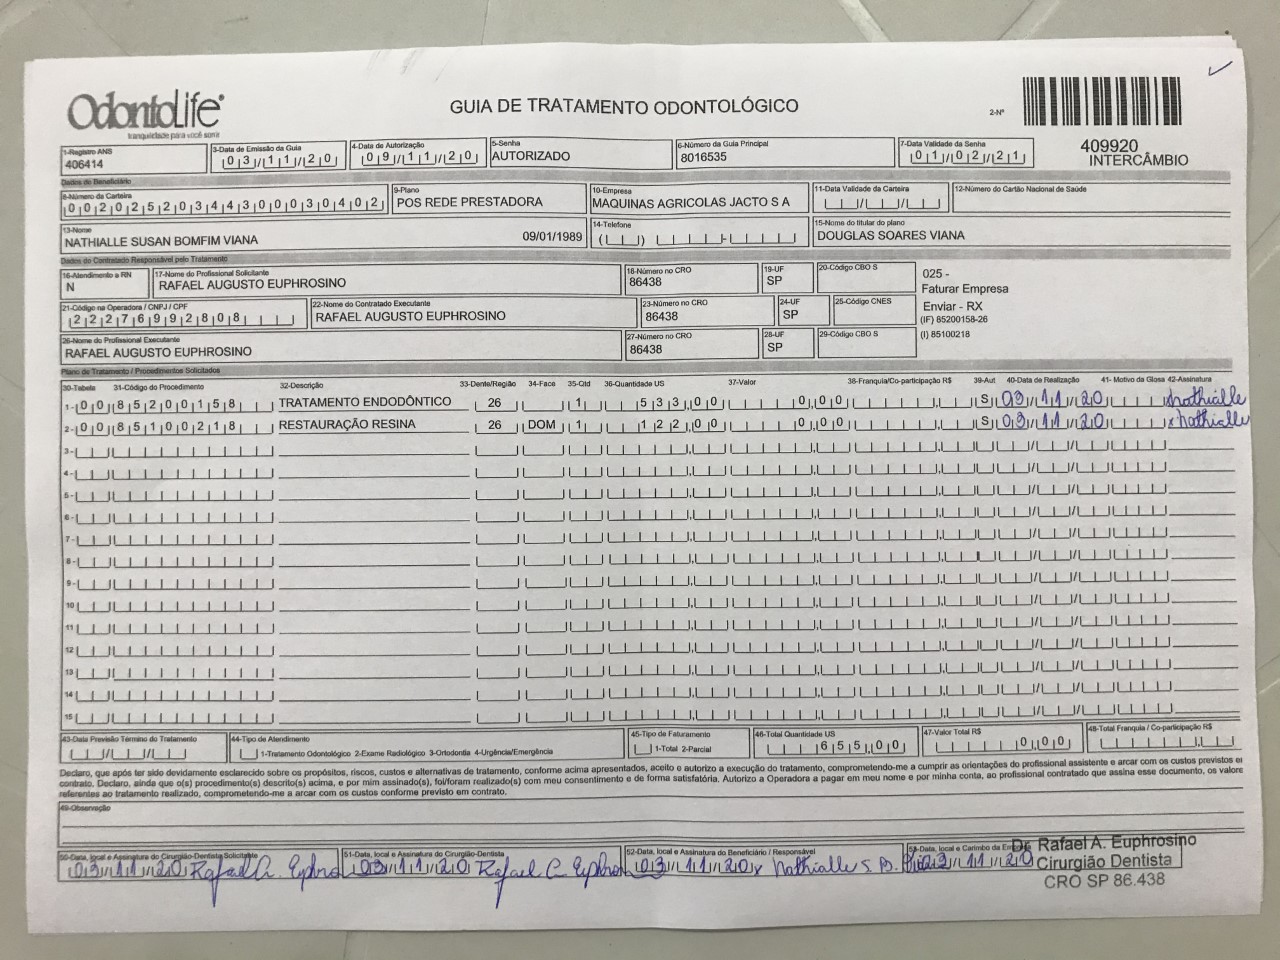 OdontoLife
tranquilidade para você sorrir
GUIA DE TRATAMENTO ODONTOLÓGICO
2-Nº
409920
INTERCÂMBIO
1-Registro ANS
406414
3-Data de Emissão da Guia
03/11/20
4-Data de Autorização
09/11/20
5-Senha
AUTORIZADO
6-Número da Guia Principal
8016535
7-Data Validade da Senha
01/02/21
Dados do Beneficiário
8-Número da Carteira
00202520344300030402
9-Plano
POS REDE PRESTADORA
10-Empresa
MAQUINAS AGRICOLAS JACTO S A
11-Data Validade da Carteira
12-Número do Cartão Nacional de Saúde
13-Nome
NATHIALLE SUSAN BOMFIM VIANA 09/01/1989
14-Telefone
15-Nome do titular do plano
DOUGLAS SOARES VIANA
Dados do Contratado Responsável pelo Tratamento
16-Atendimento a RN
N
17-Nome do Profissional Solicitante
RAFAEL AUGUSTO EUPHROSINO
18-Número no CRO
86438
19-UF
SP
20-Código CBO S
025 -
Faturar Empresa
Enviar - RX
(IF) 85200158-26
(I) 85100218
21-Código na Operadora / CNPJ / CPF
22276992808
22-Nome do Contratado Executante
RAFAEL AUGUSTO EUPHROSINO
23-Número no CRO
86438
24-UF
SP
25-Código CNES
26-Nome do Profissional Executante
RAFAEL AUGUSTO EUPHROSINO
27-Número no CRO
86438
28-UF
SP
29-Código CBO S
Plano de Tratamento / Procedimentos Solicitados
30-Tabela 31-Código do Procedimento 32-Descrição 33-Dente/Região 34-Face 35-Qtd 36-Quantidade US 37-Valor 38-Franquia/Co-participação R$ 39-Aut 40-Data de Realização 41- Motivo da Glosa 42-Assinatura
1- 00 85200158 TRATAMENTO ENDODÔNTICO 26 1 533,00 0,00 S 09/11/20 Nathialle
2- 00 85100218 RESTAURAÇÃO RESINA 26 DOM 1 122,00 0,00 S 09/11/20 x Nathialle
3-
4-
5-
6-
7-
8-
9-
10
11
12
13
14
15
43-Data Previsão Término do Tratamento
44-Tipo de Atendimento
1-Tratamento Odontológico 2-Exame Radiológico 3-Ortodontia 4-Urgência/Emergência
45-Tipo de Faturamento
1-Total 2-Parcial
46-Total Quantidade US
655,00
47-Valor Total R$
0,00
48-Total Franquia / Co-participação R$
Declaro, que após ter sido devidamente esclarecido sobre os propósitos, riscos, custos e alternativas de tratamento, conforme acima apresentados, aceito e autorizo a execução do tratamento, comprometendo-me a cumprir as orientações do profissional assistente e arcar com os custos previstos em
contrato. Declaro, ainda que o(s) procedimento(s) descrito(s) acima, e por mim assinado(s), foi/foram realizado(s) com meu consentimento e de forma satisfatória. Autorizo a Operadora a pagar em meu nome e por minha conta, ao profissional contratado que assina esse documento, os valore
referentes ao tratamento realizado, comprometendo-me a arcar com os custos conforme previsto em contrato.
49-Observação
50-Data, local e Assinatura do Cirurgião-Dentista Solicitante
03/11/20 Rafael A. Euphro
51-Data, local e Assinatura do Cirurgião-Dentista
03/11/20 Rafael A. Euphros
52-Data, local e Assinatura do Beneficiário / Responsável
03/11/20 x Nathialle S. B.
53-Data, local e Carimbo da Em
03/11/20
Dr. Rafael A. Euphrosino
Cirurgião Dentista
CRO SP 86.438